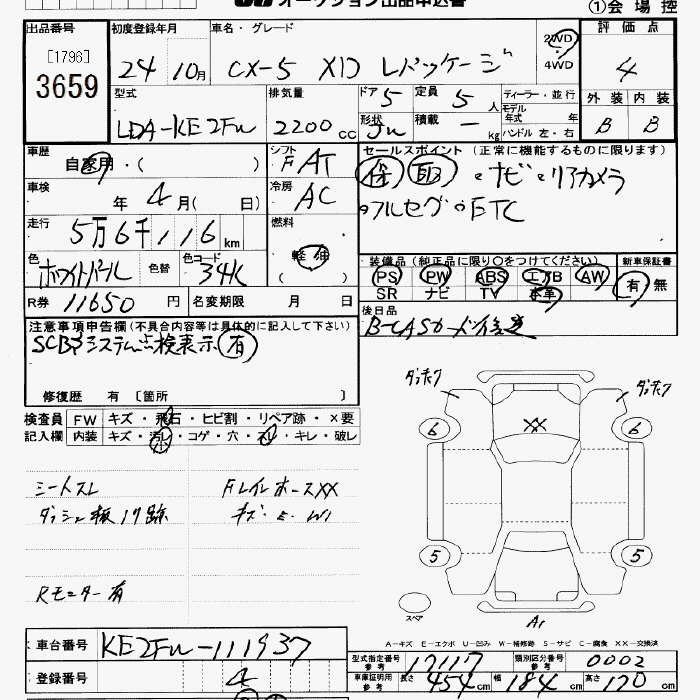 オークション出品申込書
①会場控
出品番号 初度登録年月 車名・グレード 評価点
[1796]
3659
24 10月 CX-5 XD Lパッケージ 2WD 4WD 4
型式 排気量 ドア 5 定員 5人 ディーラー・並行 外装 内装
モデル年式 年
LDA-KE2FW 2200cc 形状 積載 - kg ハンドル 左・右 B B
車歴 自家用・( ) シフト FAT セールスポイント (正常に機能するものに限ります)
車検 年 4月( 日) 冷房 AC 保 取 ・ナビ・リアカメラ
走行 5万6千116km 燃料 軽油 ( ) ・フルセグ・ETC
色 ホワイトパール 色替 色コード 34K 装備品(純正品に限り〇をつけてください) 新車保証書
PS PW ABS エアB AW 有 無
SR ナビ TV 本革
R券 11650円 名変期限 月 日 後日品
B-CASカード
注意事項申告欄(不具合内容等は具体的に記入して下さい)
SCBSシステム点検表示 有
修復歴 有 [箇所 ]
検査員記入欄 FW キズ・飛石・ヒビ割・リペア跡・×要
内装 キズ・汚レ・コゲ・穴・スレ・キレ・破レ
シートスレ FレインホースXX
ダッシュ板 跡 キズ・E・W1
Rモニター有
XX
6 6
5 5
スペア
A-キズ E-エクボ U-凹み W-補修跡 S-サビ C-腐食 XX-交換済
車台番号 KE2FW-111937 型式指定番号参考 17117 類別区分番号参考 0002
登録番号 4 車庫証明用参考 長さ 454cm 幅 184cm 高さ 170cm